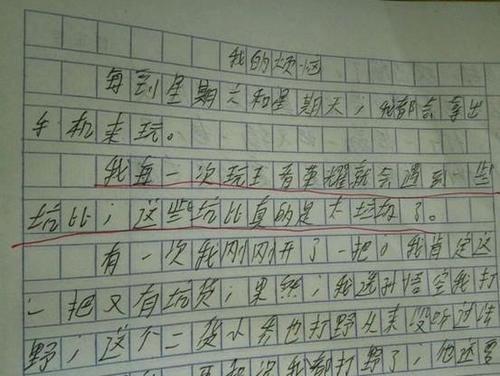 我的烦恼
每到星期六和星期天，我都会拿出
手机来玩。
我每一次玩王者荣耀就会遇到一些
坑比，这些坑比真的是太垃圾了。
有一次我刚刚开了一把。我肯定这
一把又有坑货，果然，我选孙悟空我打
野，这个二货小子也打野从来没听过法
我都打野了，他还要